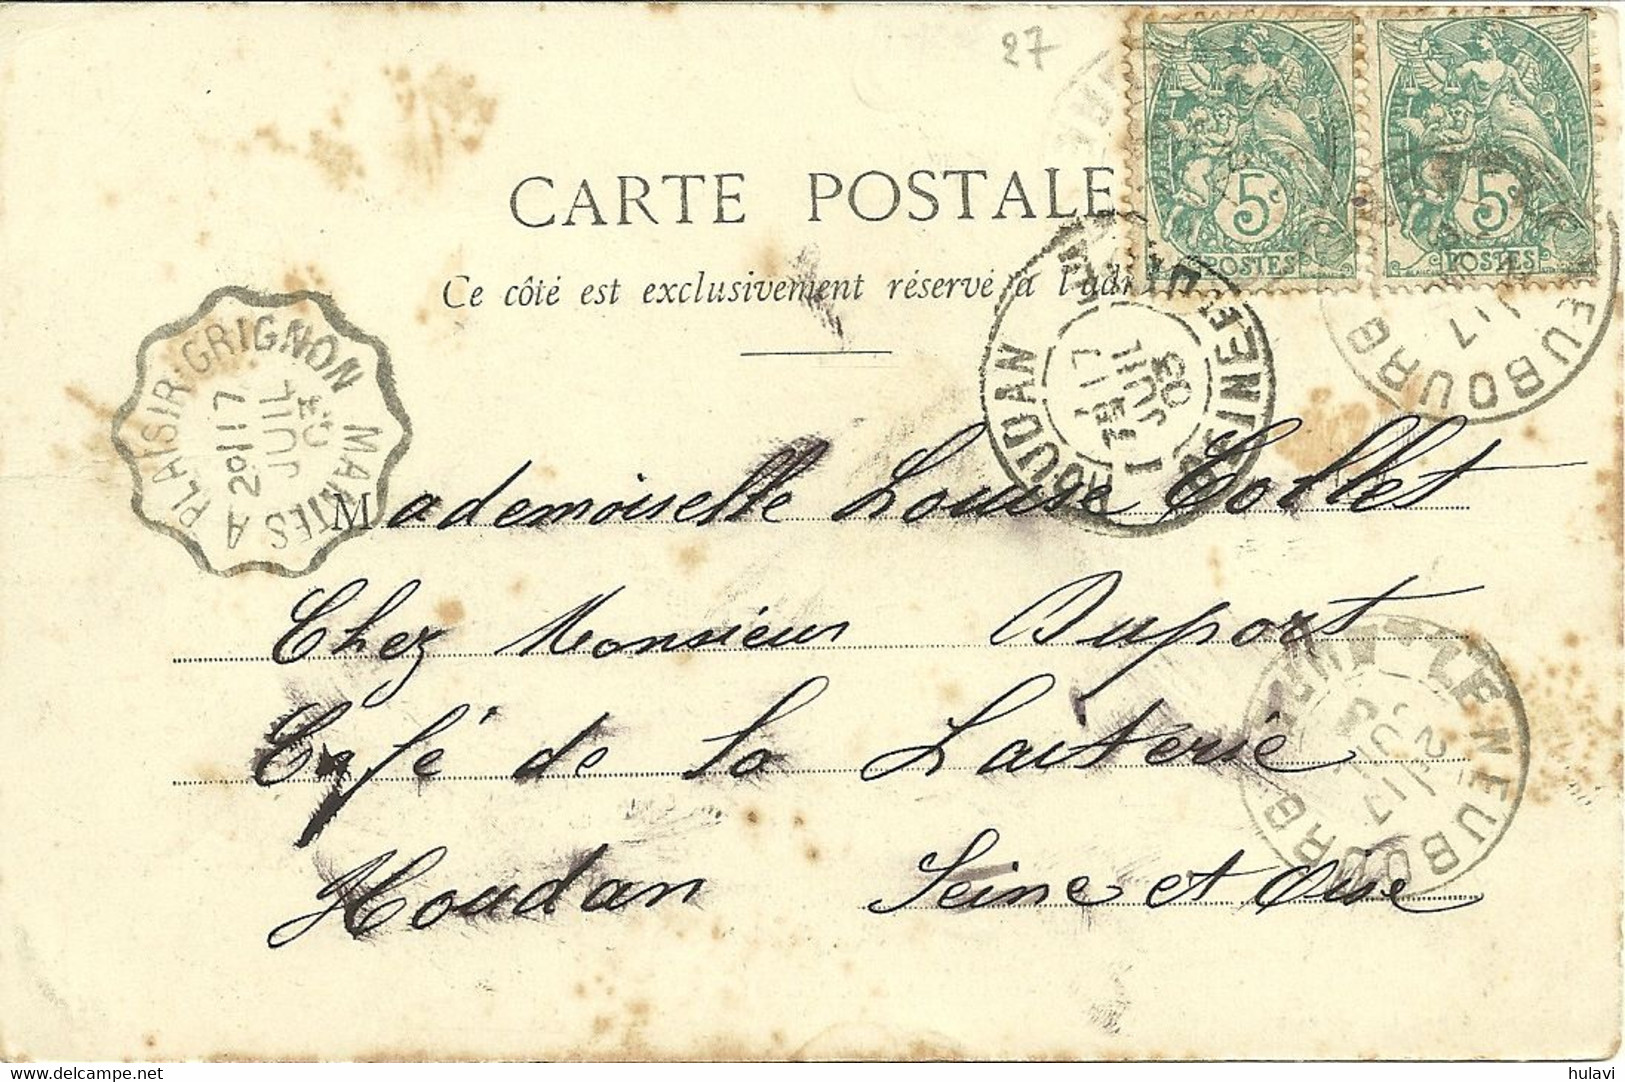 27
CARTE POSTALE
Ce côté est exclusivement réservé à l'adr
5c 5c
POSTES POSTES
PLAISIR GRIGNON MANTES A
2° 17
JUIL
03
HOUDAN SEINE ET
17
JUIL
03
LE NEUBOURG
17
Mademoiselle Louise Collet
Chez Monsieur Duport
Café de la Laiterie
Houdan Seine et Oise
LE NEUBOURG EURE
17
delcampe.net
hulavi